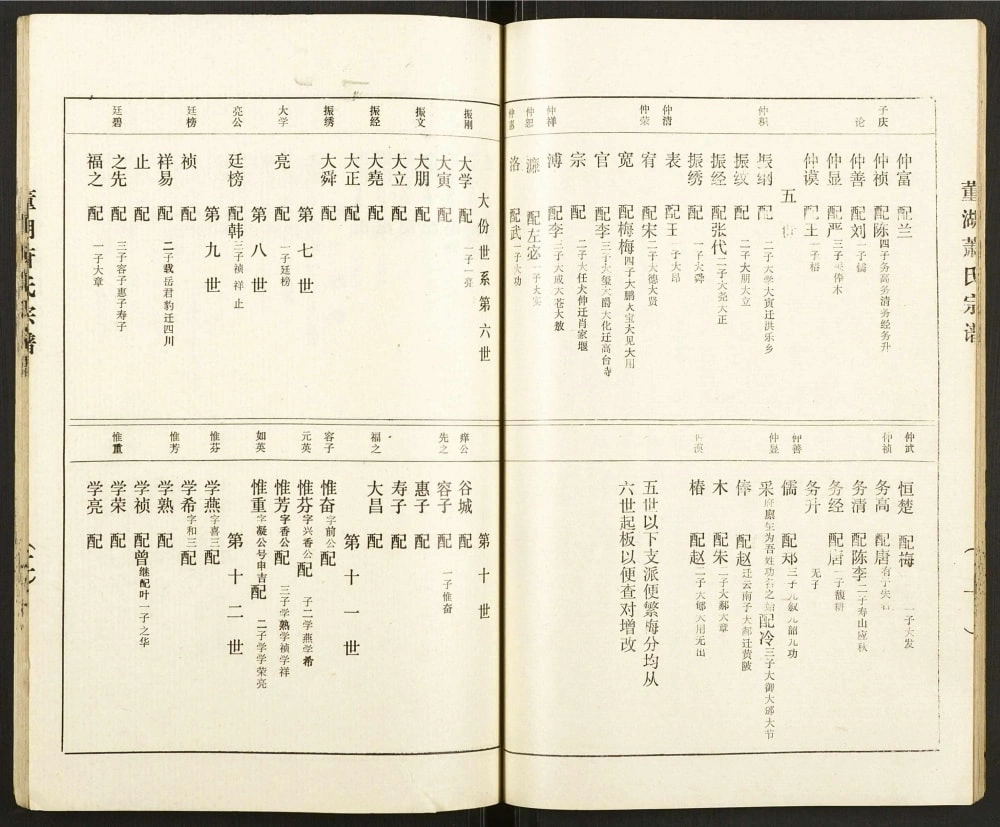 董湖萧氏宗谱
子庆
仲富 配兰
仲祯 配陈 四子务高务清务经务升
论
仲善 配刘 一子儒
仲显 配严
仲谟 配王 一子椿
五
仲积
配 二子大学大寅迁洪乐乡
振纹 配 二子大朋大立
振经 配张代 二子大尧大正
振绣 配 一子大舜
仲清
表 配王 一子大昂
仲荣
宥 配宋 二子大德大贤
宽 配梅梅 四子大鹏大宝大见大用
官 配李 三子大玺大爵大化迁高台寺
宗 配 二子大任大伸迁肖家堰
仲祥
溥 配李 三子大成大苍大敖
仲恕
濂 配左宓
洛 配武 一子大功
仲武
恒楚 配梅 一子大发
仲祯
务高 配唐
务清 配陈李 二子寿山应秋
务经 配唐 一子馥耕
务升 无子
仲善
儒 配邓
仲显
采 配冷 三子大御大郷大节
俸 配赵 迁云南子大郝迁黄陂
木 配朱 二子大郝大章
椿 配赵
五世以下支派便繁每分均从
六世起板以便查对增改
大份世系第六世
振刚
大学 配 一子一亮
大寅 配
振文
大朋 配
大立 配
振经
大堯 配
大正 配
振绣
大舜 配
第七世
大学
亮 配 一子廷榜
第八世
亮公
廷榜 配韩 三子祯祥止
第九世
廷榜
祯 配
祥易 配 二子载岳君豹迁四川
止 配
廷碧
之先 配 三子容子惠子寿子
福之 配 一子大章
第十世
谷城 配
先之
容子 配 一子惟奋
惠子 配
寿子 配
福之
大昌 配
第十一世
容子
惟奋 字前公 配
元英
惟芬 字兴香公 配 子二学燕学希
惟芳 字香公 配 三子学熟学祯学祥
如英
惟重 字凝公号申吉 配 二子学学荣亮
第十二世
惟芬
学燕 字喜三 配
学希 字和三 配
惟芳
学熟 配
学祯 配曾 继配叶一子之华
惟重
学荣 配
学亮 配